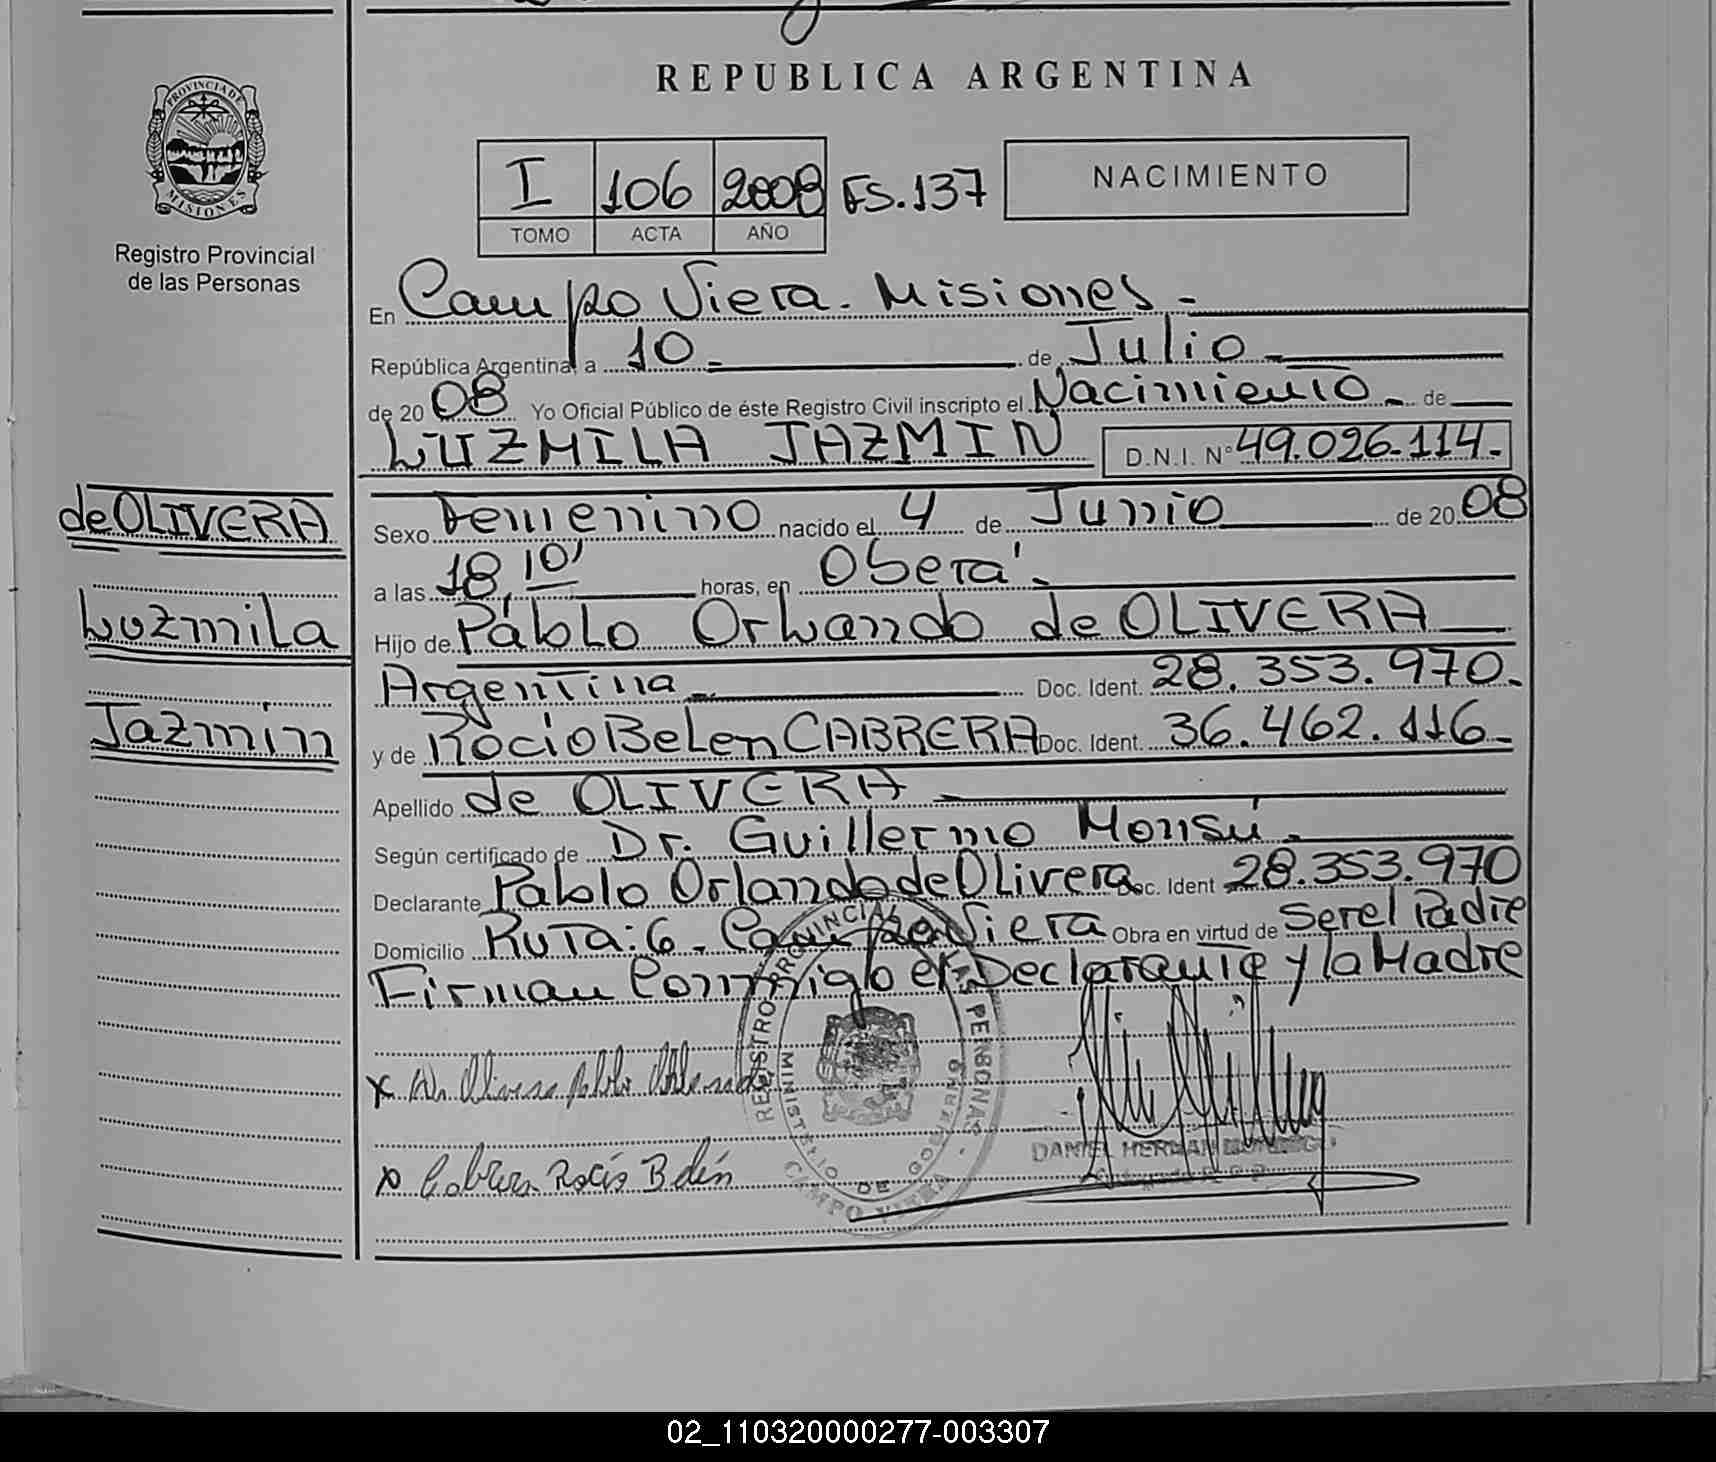 REPUBLICA ARGENTINA
PROVINCIA DE MISIONES
Registro Provincial
de las Personas
I 106 2008 FS.137
TOMO ACTA AÑO
NACIMIENTO
En Campo Viera - Misiones -
República Argentina, a 10 - de Julio -
de 2008 Yo Oficial Público de éste Registro Civil inscripto el Nacimiento - de
LUZMILA JAZMIN D.N.I. N° 49.026.114.-
de OLIVERA
Luzmila
Jazmin
Sexo Femenino nacido el 4 de Junio de 2008
a las 18,10' horas, en Oberá -
Hijo de Pablo Orlando de OLIVERA
Argentina - Doc. Ident. 28.353.970.-
y de Rocio Belen CABRERA Doc. Ident. 36.462.116-
Apellido de OLIVERA
Según certificado de Dr. Guillermo Monsú -
Declarante Pablo Orlando de Olivera Doc. Ident 28.353.970
Domicilio Ruta: 6 - Campo Viera Obra en virtud de Ser el Padre
Firman Conmigo el Declarante y la Madre
x de Olivera Pablo Orlando
x Cabrera Rocío Belén
REGISTRO PROVINCIAL DE LAS PERSONAS
MINISTERIO DE GOBIERNO
CAMPO VIERA
DANIEL HERNAN
02_110320000277-003307